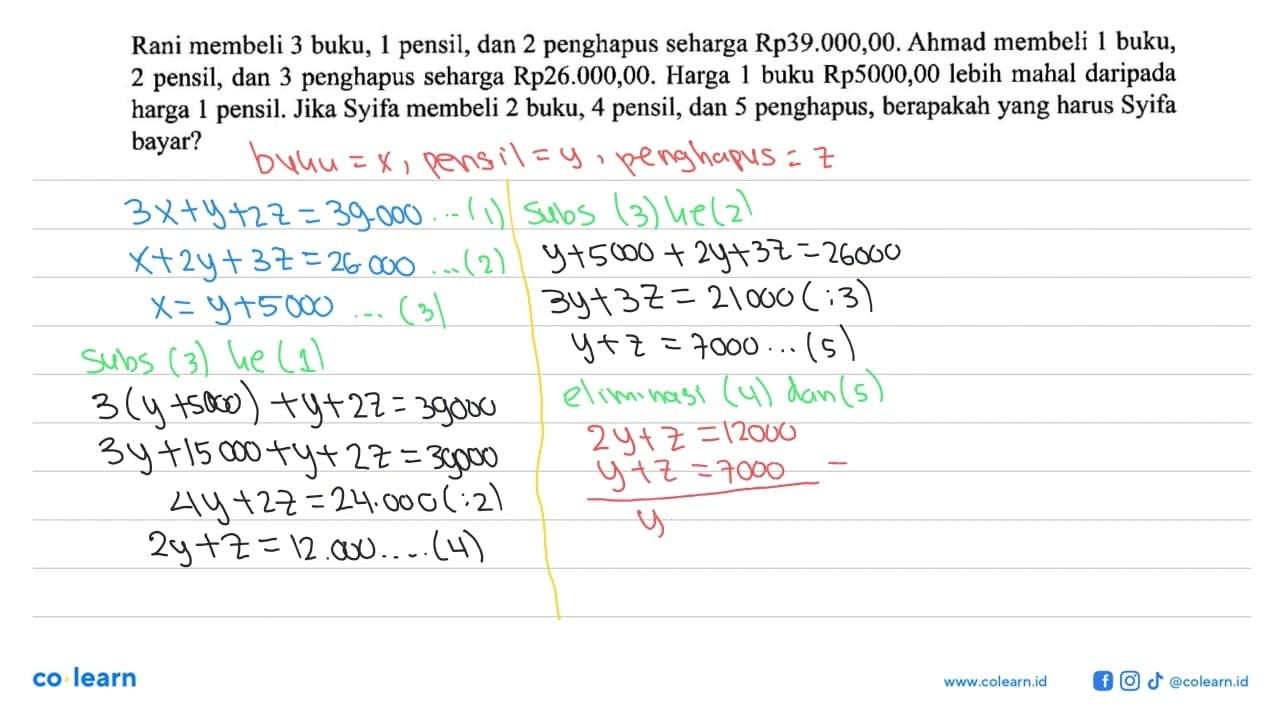 Rani membeli 3 buku, 1 pensil, dan 2 penghapus seharga Rp39.000,00. Ahmad membeli 1 buku,
2 pensil, dan 3 penghapus seharga Rp26.000,00. Harga 1 buku Rp5000,00 lebih mahal daripada
harga 1 pensil. Jika Syifa membeli 2 buku, 4 pensil, dan 5 penghapus, berapakah yang harus Syifa
bayar?
buku = x, pensil = y, penghapus = z
3x+y+2z = 39.000 ... (1)
x+2y+3z = 26.000 ... (2)
x = y+5000 ... (3)
subs (3) ke (1)
3(y+5000)+y+2z = 39000
3y+15000+y+2z = 39000
4y+2z = 24.000 (:2)
2y+z = 12.000 .... (4)
subs (3) ke (2)
y+5000+2y+3z = 26000
3y+3z = 21000 (:3)
y+z = 7000 ... (5)
eliminasi (4) dan (5)
2y+z = 12000
y+z = 7000 −
y
co learn
www.colearn.id
@colearn.id